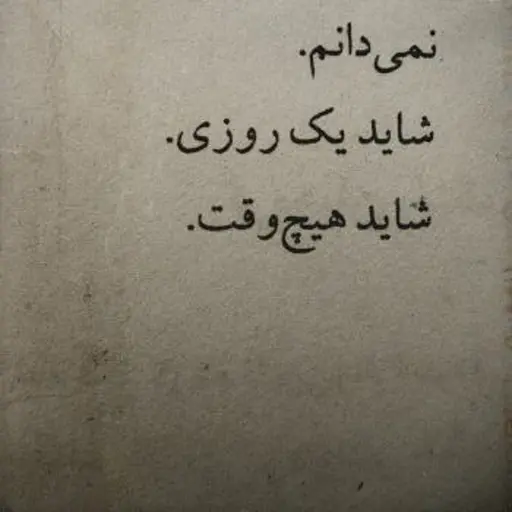 نمی‌دانم.
شاید یک روزی.
شاید هیچ‌وقت.